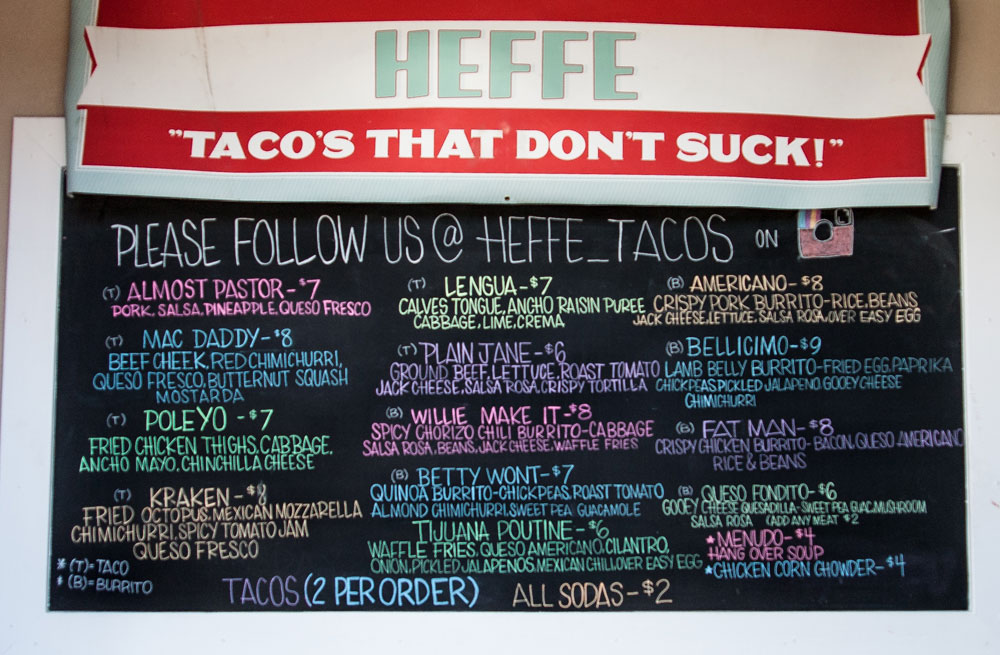 HEFFE
"TACO'S THAT DON'T SUCK!"
PLEASE FOLLOW US @ HEFFE_TACOS ON
(T) ALMOST PASTOR-$7
PORK, SALSA, PINEAPPLE, QUESO FRESCO
(T) MAC DADDY-$8
BEEF CHEEK, RED CHIMICHURRI,
QUESO FRESCO, BUTTERNUT SQUASH
MOSTARDA
(T) POLEYO-$7
FRIED CHICKEN THIGHS, CABBAGE,
ANCHO MAYO, CHINCHILLA CHEESE
(T) KRAKEN-$8
FRIED OCTOPUS, MEXICAN MOZZARELLA
CHIMICHURRI, SPICY TOMATO JAM
QUESO FRESCO
* (T)=TACO
* (B)=BURRITO
(T) LENGUA-$7
CALVES TONGUE, ANCHO RAISIN PUREE
CABBAGE, LIME, CREMA
(T) PLAIN JANE-$6
GROUND BEEF, LETTUCE, ROAST TOMATO
JACK CHEESE, SALSA ROSA, CRISPY TORTILLA
(B) WILLIE MAKE IT-$8
SPICY CHORIZO CHILI BURRITO-CABBAGE
SALSA ROSA, BEANS, JACK CHEESE, WAFFLE FRIES
(B) BETTY WONT-$7
QUINOA BURRITO-CHICKPEAS, ROAST TOMATO
ALMOND CHIMICHURRI, SWEET PEA GUACAMOLE
TIJUANA POUTINE-$6
WAFFLE FRIES, QUESO AMERICANO, CILANTRO,
ONION, PICKLED JALAPENOS, MEXICAN CHILI, OVER EASY EGG
(B) AMERICANO-$8
CRISPY PORK BURRITO-RICE, BEANS
JACK CHEESE, LETTUCE, SALSA ROSA, OVER EASY EGG
(B) BELLICIMO-$9
LAMB BELLY BURRITO-FRIED EGG, PAPRIKA
CHICKPEAS, PICKLED JALAPENO, GOOEY CHEESE
CHIMICHURRI
(B) FAT MAN-$8
CRISPY CHICKEN BURRITO-BACON, QUESO AMERICANO
RICE & BEANS
(B) QUESO FONDITO-$6
GOOEY CHEESE QUESADILLA-SWEET PEA GUAC, MUSHROOM
SALSA ROSA (ADD ANY MEAT $2
*MENUDO-$4
HANG OVER SOUP
*CHICKEN CORN CHOWDER-$4
TACOS (2 PER ORDER) ALL SODAS-$2